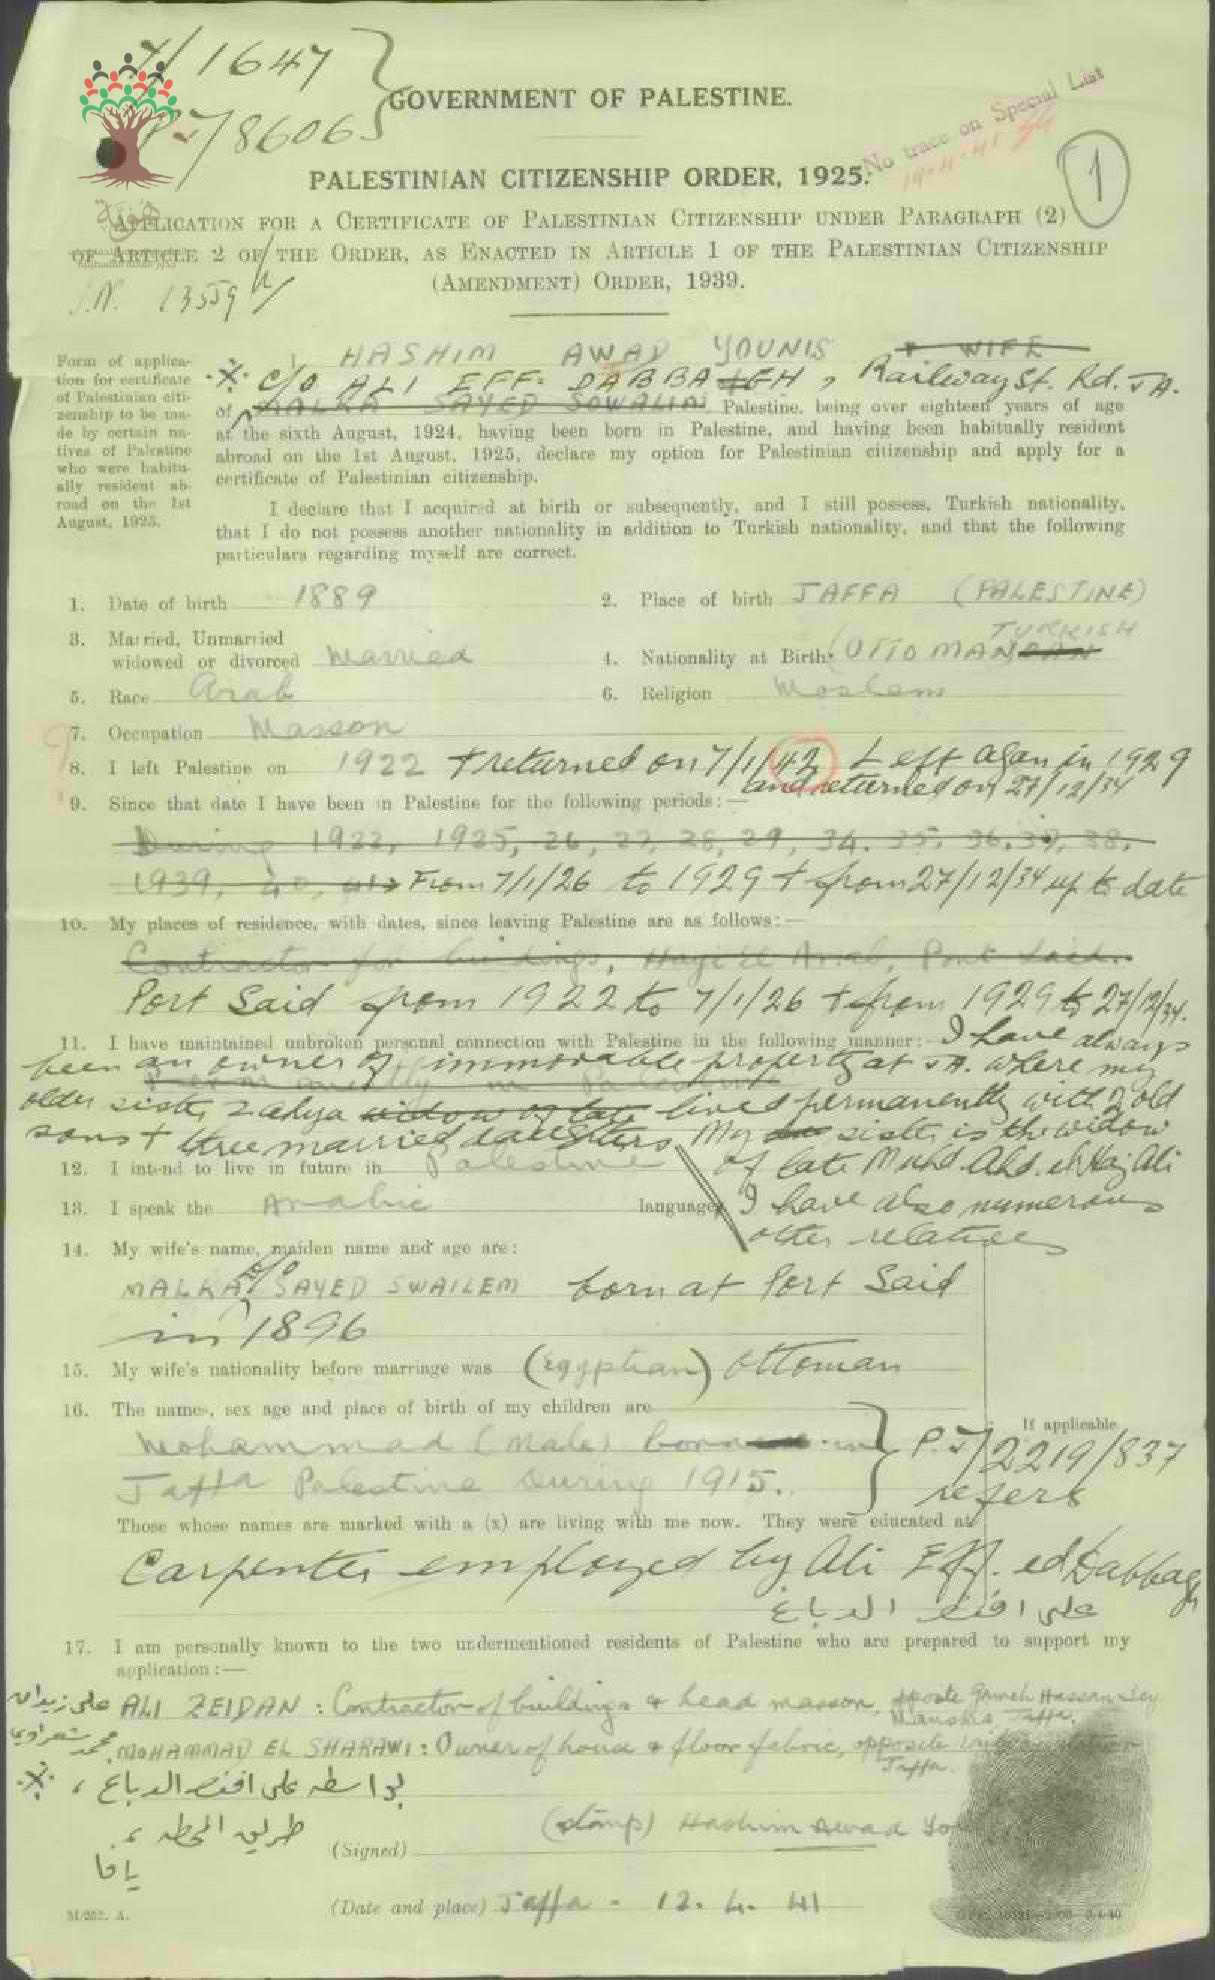 Y/1647
P.J/8606
GOVERNMENT OF PALESTINE.
No trace on Special List
19-4-41
1
PALESTINIAN CITIZENSHIP ORDER, 1925.
APPLICATION FOR A CERTIFICATE OF PALESTINIAN CITIZENSHIP UNDER PARAGRAPH (2)
OF ARTICLE 2 OF THE ORDER, AS ENACTED IN ARTICLE 1 OF THE PALESTINIAN CITIZENSHIP
(AMENDMENT) ORDER, 1939.
هوية
J.N. 13559
Form of applica-
tion for certificate
of Palestinian citi-
zenship to be ma-
de by certain na-
tives of Palestine
who were habitu-
ally resident ab-
road on the 1st
August, 1925.
I HASHIM AWAD YOUNIS + WIFE
C/O ALI EFF. DABBAGH, Railway St. Rd. JA.
of MALKA SAYED SOWALIM Palestine, being over eighteen years of age
at the sixth August, 1924, having been born in Palestine, and having been habitually resident
abroad on the 1st August, 1925, declare my option for Palestinian citizenship and apply for a
certificate of Palestinian citizenship.
I declare that I acquired at birth or subsequently, and I still possess, Turkish nationality,
that I do not possess another nationality in addition to Turkish nationality, and that the following
particulars regarding myself are correct.
1. Date of birth 1889 2. Place of birth JAFFA (PALESTINE)
3. Married, Unmarried
widowed or divorced Married 4. Nationality at Birth: (OTTOMAN TURKISH
5. Race Arab 6. Religion Moslem
7. Occupation Masson
8. I left Palestine on 1922 + returned on 7/1/42 Left again in 1929
and returned on 27/12/34
9. Since that date I have been in Palestine for the following periods:—
During 1922, 1925, 26, 27, 28, 29, 34. 35. 36. 37, 38.
1939, 40, 41 From 7/1/26 to 1929 + from 27/12/34 up to date
10. My places of residence, with dates, since leaving Palestine are as follows:—
Contractor for buildings, Port Said
Port Said from 1922 to 7/1/26 + from 1929 to 27/12/34.
11. I have maintained unbroken personal connection with Palestine in the following manner:- I have always
been an owner of immovable property at JA. where my
Permanently in Palestine
older sister Zahya widow of late lived permanently with 2 old
sons + three married daughters. My sister is the widow
of late Muhd. Ahd. el Haj Ali
12. I intend to live in future in Palestine
13. I speak the Arabic language. I have also numerous
other relatives
14. My wife's name, maiden name and age are:
MALKA d/o SAYED SWAILEM born at Port Said
in 1896
15. My wife's nationality before marriage was (Egyptian) Ottoman
16. The names, sex age and place of birth of my children are
If applicable
Mohammad (Male) born in
Jaffa Palestine During 1915.
P.J/2219/837
refers
Those whose names are marked with a (x) are living with me now. They were educated at
Carpenter employed by Ali Eff. ed Dabbagh
علي افندي الدباغ
17. I am personally known to the two undermentioned residents of Palestine who are prepared to support my
application:—
علي زيدان ALI ZEIDAN: Contractor of buildings & head masson, opposite Gameh Hassan Bey
Manshia Jaffa.
محمد شعراوي MOHAMMAD EL SHARAWI: Owner of house & floor fabric, opposite
Jaffa.
بواسطه علي افندي الدباغ،
طريق المحطه،
يافا
(stamp) Hashim Awad
(Signed)
(Date and place) Jaffa - 12. 4. 41
M/252. A.